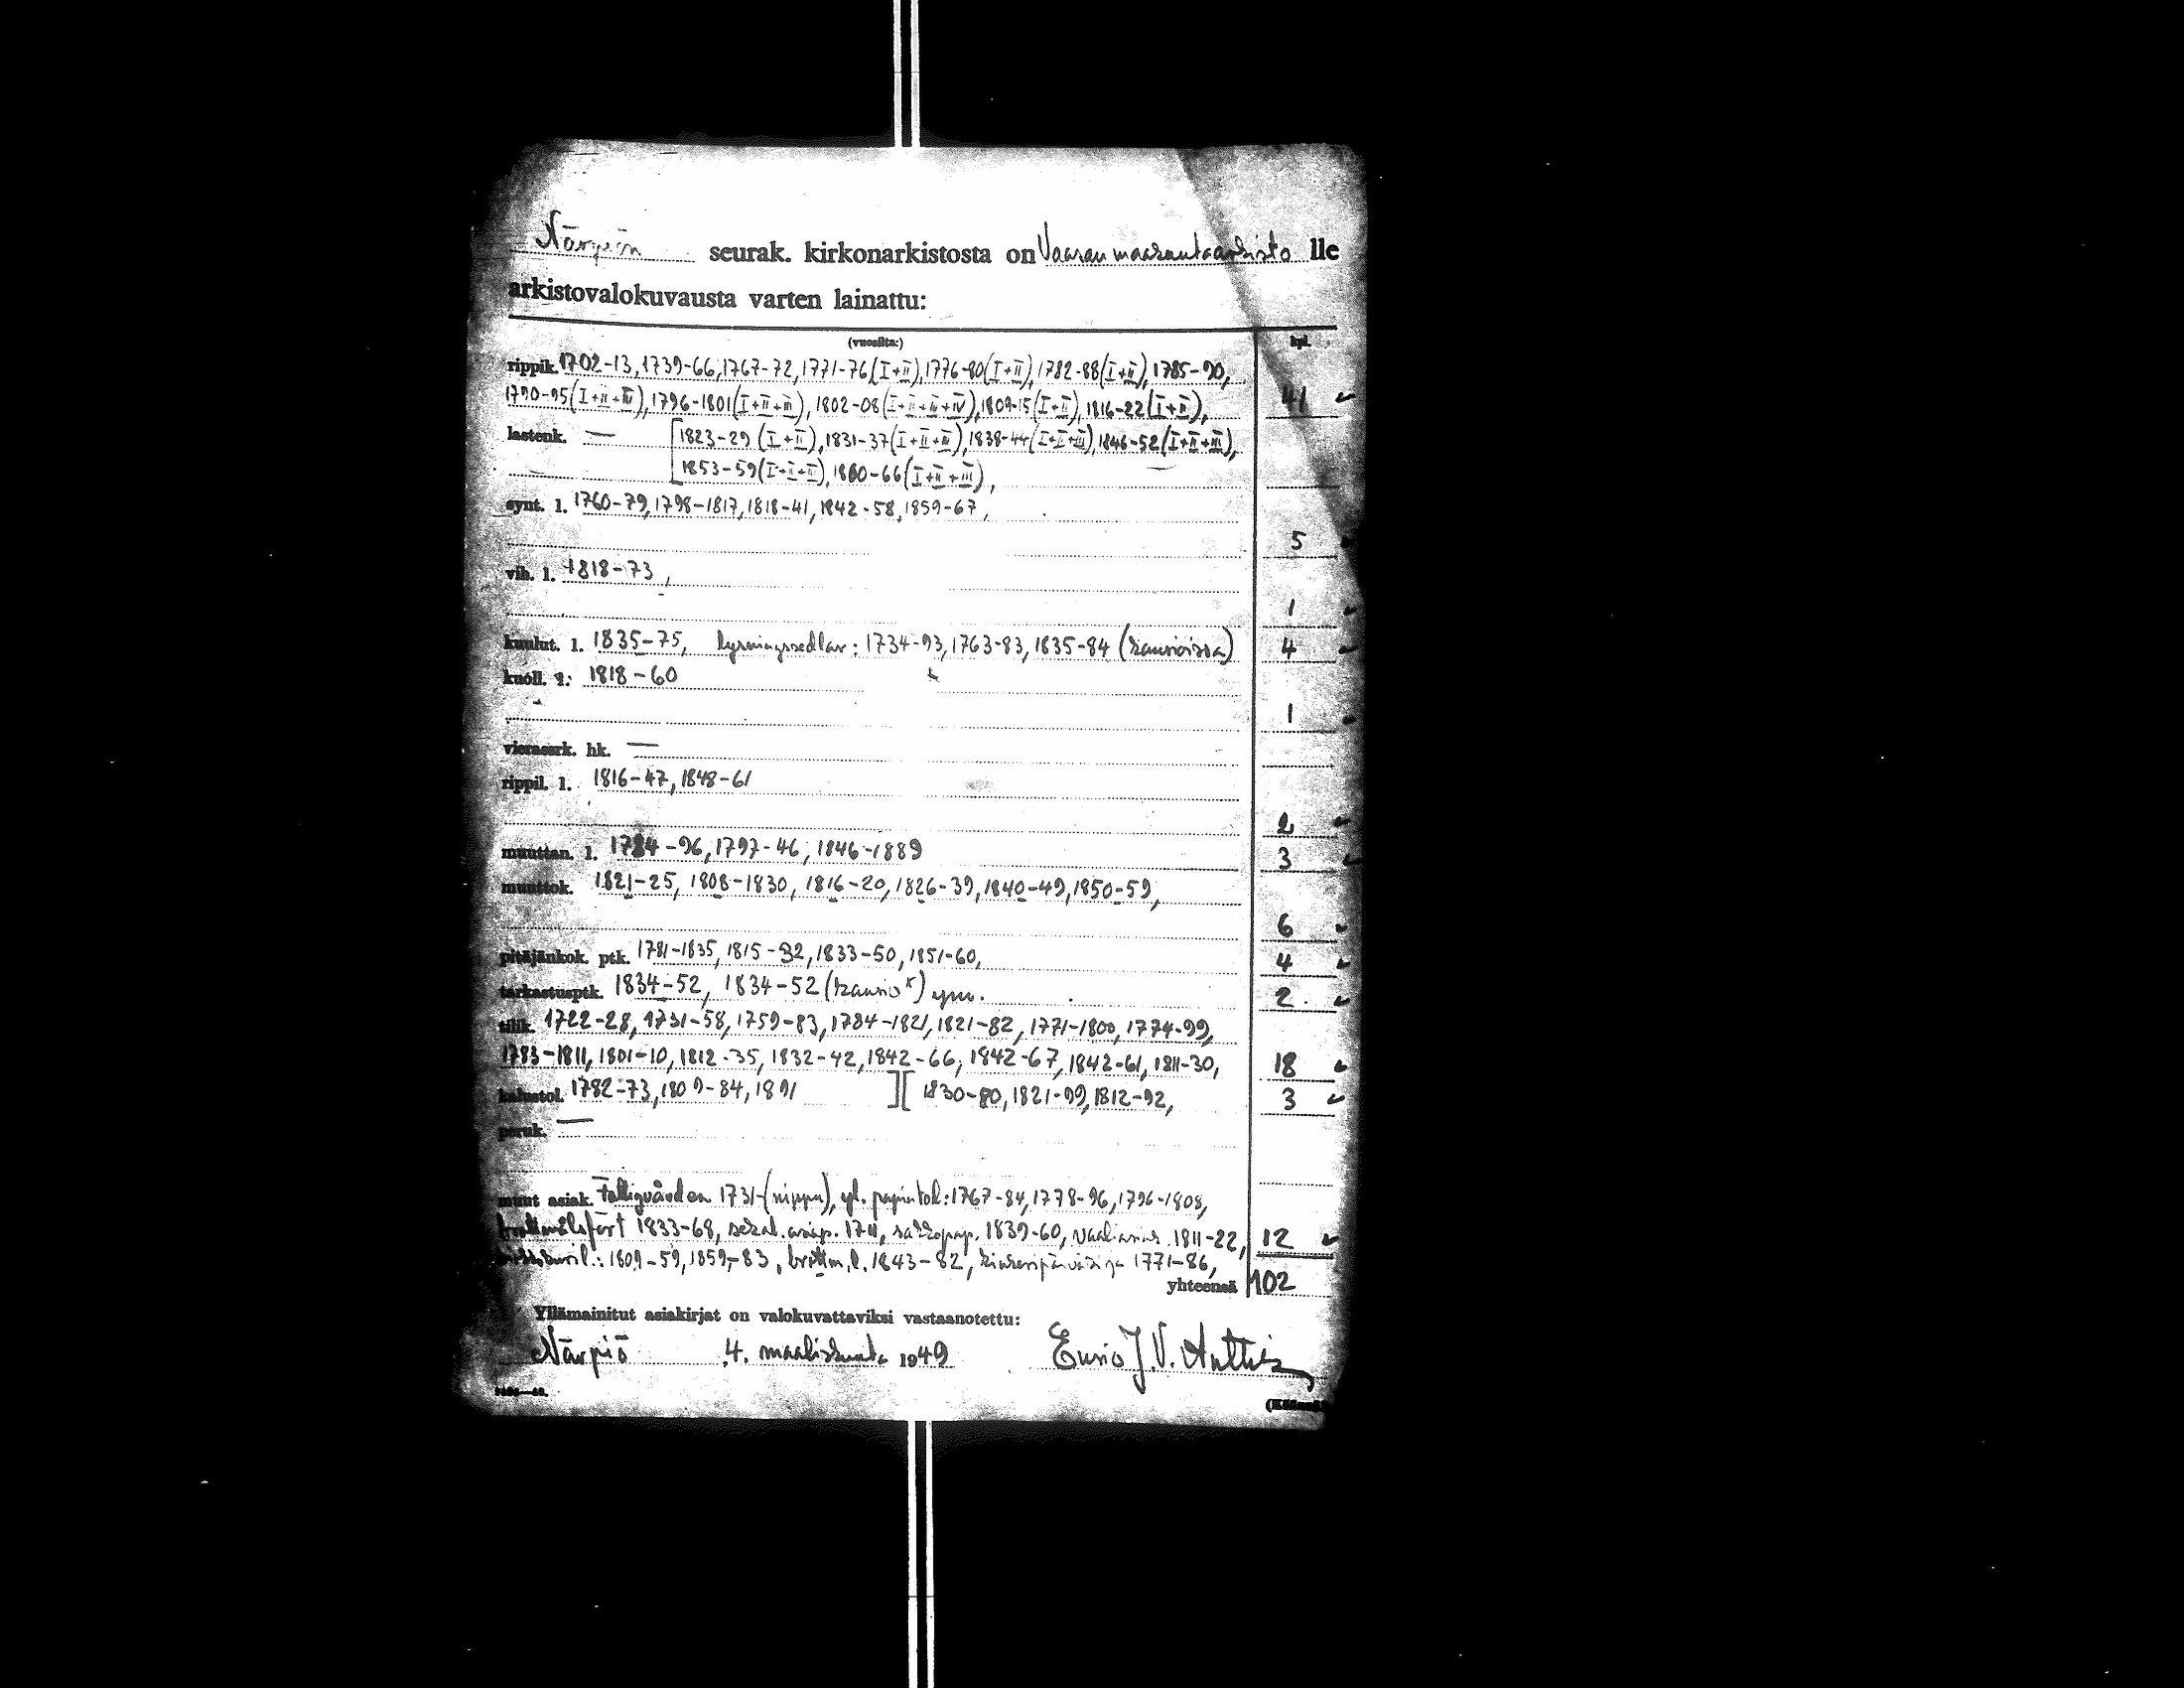 Närpiön seurak. kirkonarkistosta on Vaasan maakuntaarkisto lle
arkistovalokuvausta varten lainattu:
(vuosilta:) kpl.
rippik. 1702-13, 1739-66, 1767-72, 1771-76 (I+II), 1776-80 (I+II), 1782-88 (I+II), 1785-90,
1790-95 (I+II+III), 1796-1801 (I+II+III), 1802-08 (I+II+III+IV), 1809-15 (I+II), 1816-22 (I+II), 41
lastenk. — [1823-29 (I+II), 1831-37 (I+II+III), 1838-44 (I+II+III), 1846-52 (I+II+III),
1853-59 (I+II+III), 1860-66 (I+II+III),
synt. l. 1760-79, 1798-1817, 1818-41, 1842-58, 1859-67,
5
vih. l. 1818-73,
1
kuulut. l. 1835-75, lysningssedlar: 1734-93, 1763-83, 1835-84 (kansioissa) 4
kuoll. l. 1818-60
1
vierassrk. hk. —
rippil. l. 1816-47, 1848-61
2
muuttan. l. 1784-96, 1797-46, 1846-1889 3
muuttok. 1821-25, 1808-1830, 1816-20, 1826-39, 1840-49, 1850-59,
6
pitäjänkok. ptk. 1781-1835, 1815-32, 1833-50, 1851-60, 4
tarkastusptk. 1834-52, 1834-52 (kansio) ym. 2
tilik. 1722-28, 1731-58, 1759-83, 1784-1821, 1821-82, 1771-1800, 1774-99,
1783-1811, 1801-10, 1812-35, 1832-42, 1842-66, 1842-67, 1842-61, 1811-30, 18
kalustol. 1782-73, 1809-84, 1891 ][ 1830-80, 1821-99, 1812-92, 3
peruk. —
muut asiak. Fattigvården 1731-(nippu), 1767-84, 1778-96, 1796-1808,
1833-68, sekal. asiap. 1711, 1839-60, 1811-22, 12
1809-59, 1859-83, brottm. l. 1843-82, 1771-86,
yhteensä 102
Yllämainitut asiakirjat on valokuvattaviksi vastaanotettu:
Närpiö 4. maaliskuuta 1949 J. V.